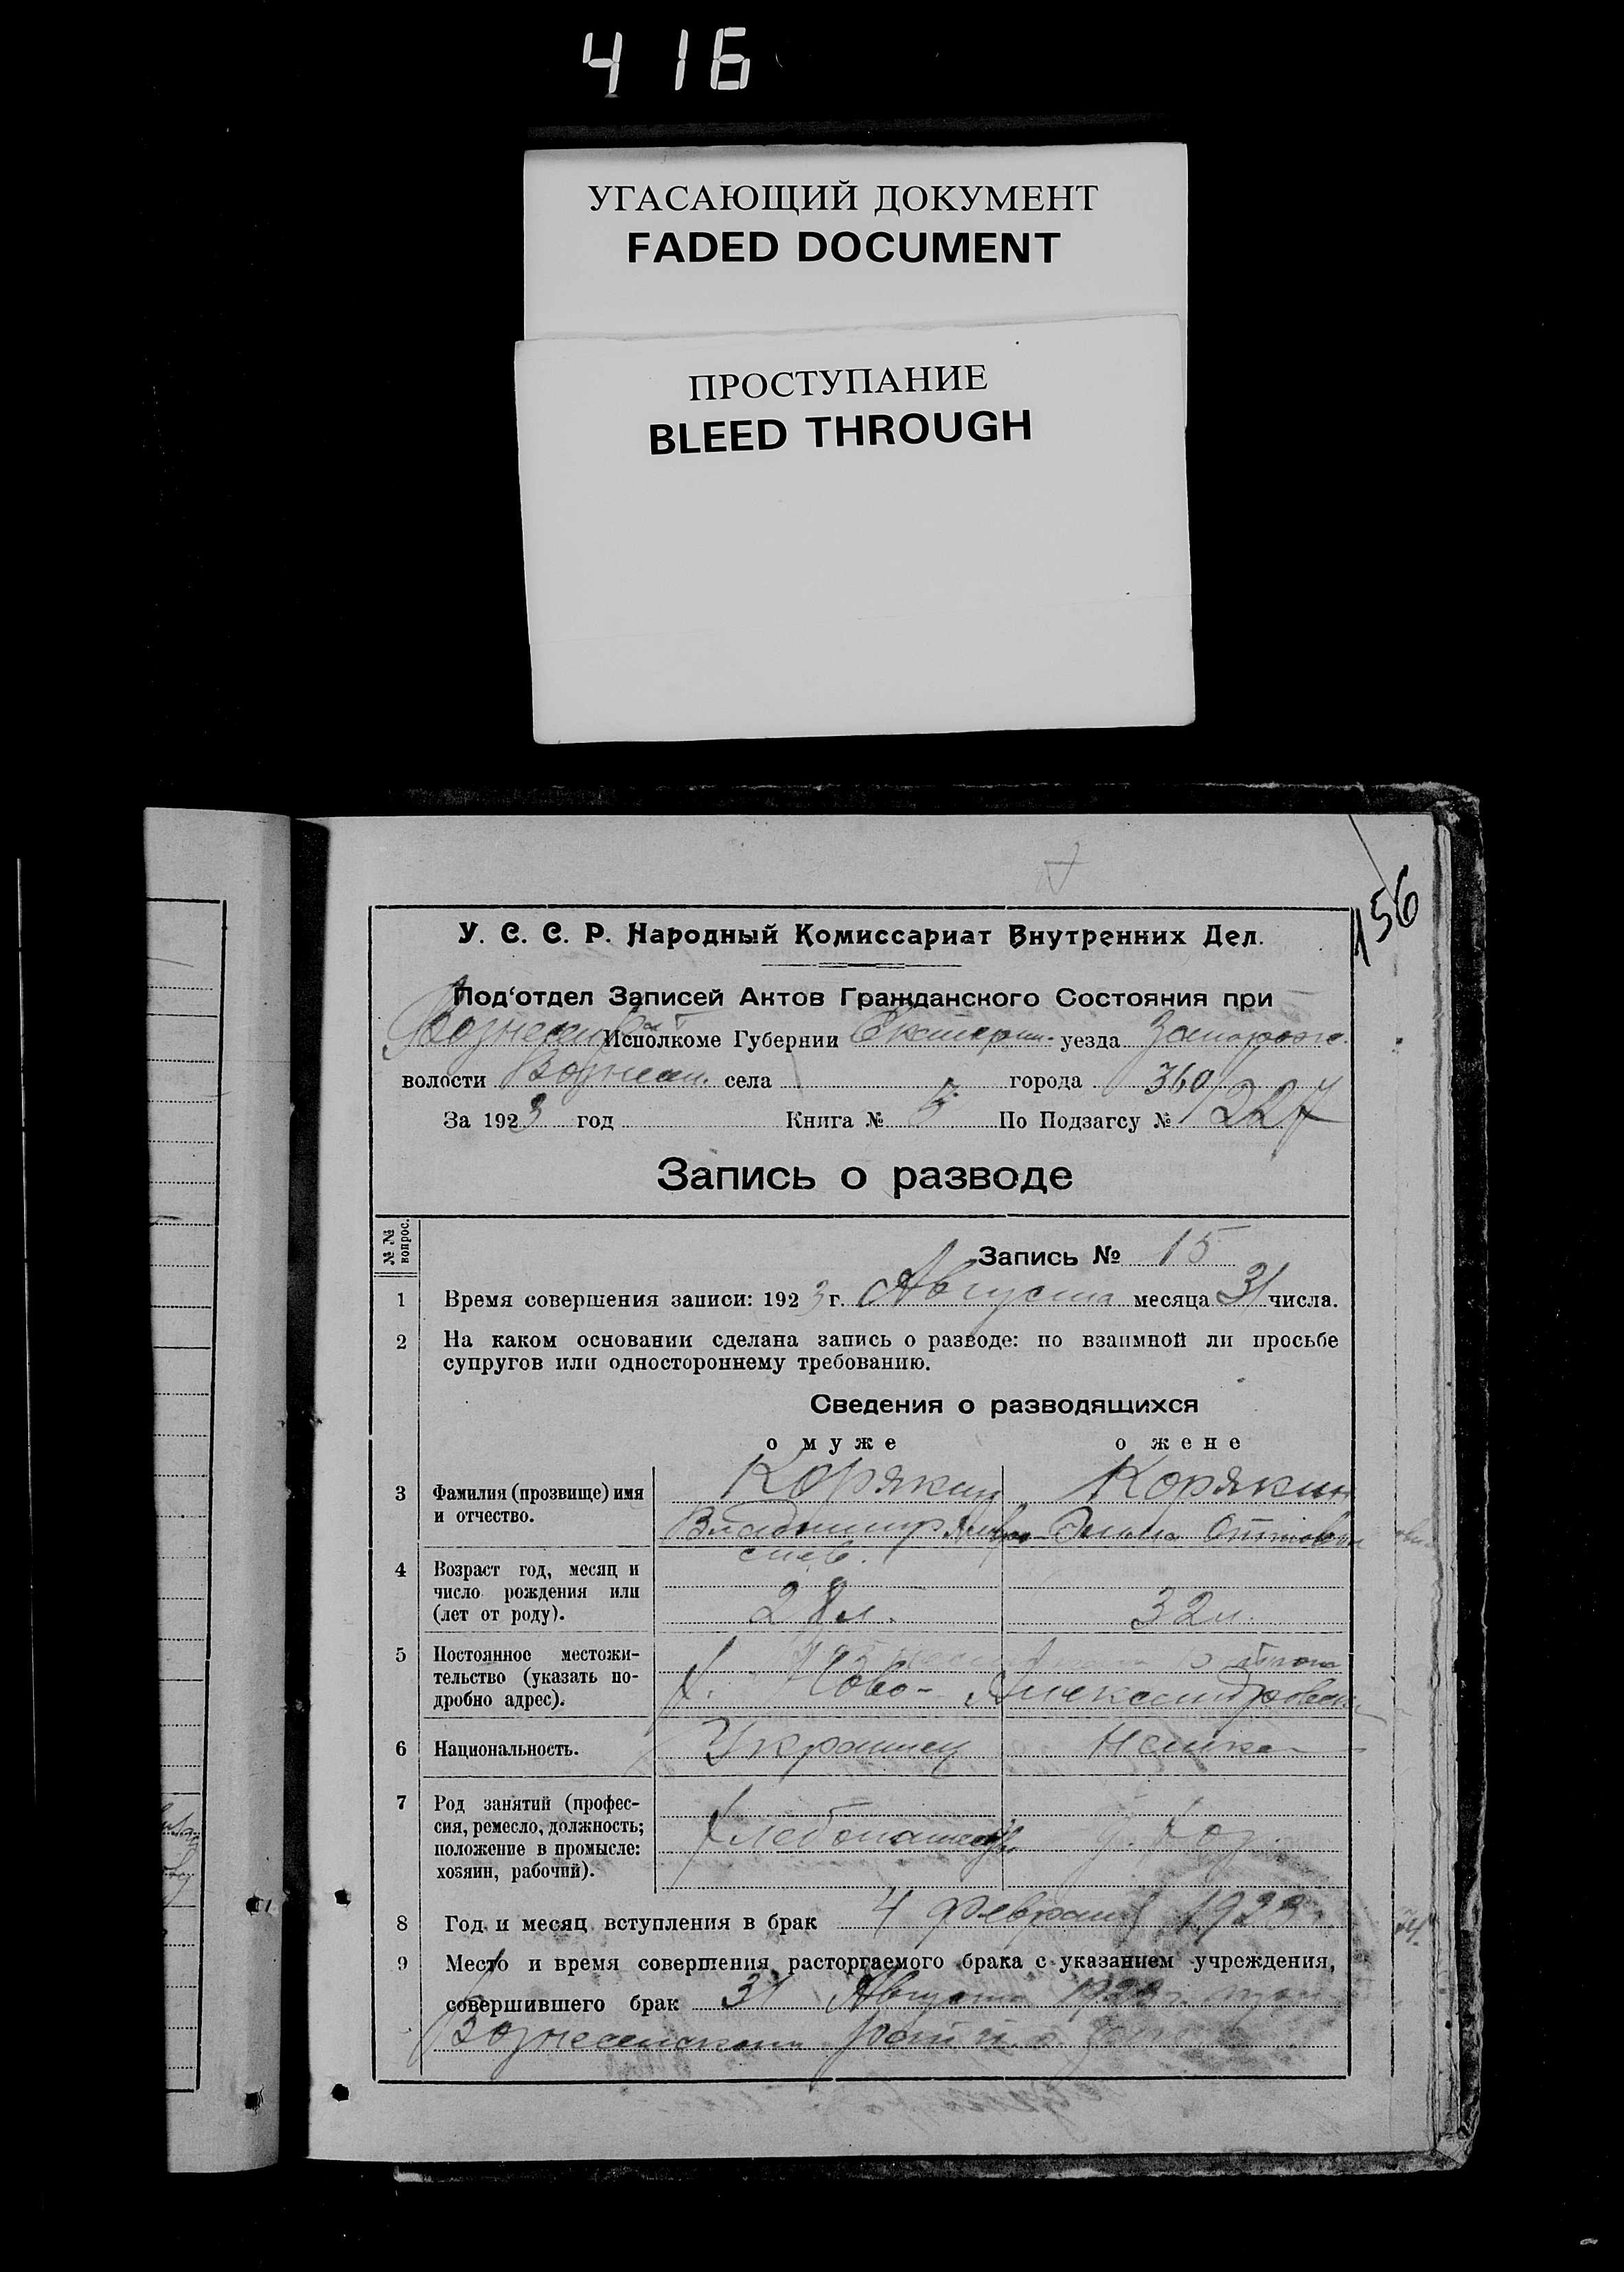 416
УГАСАЮЩИЙ ДОКУМЕНТ
FADED DOCUMENT
ПРОСТУПАНИЕ
BLEED THROUGH
156
У. С. С. Р. Народный Комиссариат Внутренних Дел.
Под'отдел Записей Актов Гражданского Состояния при
Исполкоме Губернии Екатерин. уезда Запорож.
волости Вознесен. села города 360
За 1923 год Книга № 5 По Подзагсу № 227
Запись о разводе
№ № вопрос.
Запись № 15
1 Время совершения записи: 1923 г. Августа месяца 31 числа.
2 На каком основании сделана запись о разводе: по взаимной ли просьбе
супругов или одностороннему требованию.
Сведения о разводящихся
о муже о жене
3 Фамилия (прозвище) имя Корякин Корякин
и отчество. Владимир
4 Возраст год, месяц и
число рождения или
(лет от роду). 28 л. 32 л.
5 Постоянное местожи-
тельство (указать по- х. Ново-Александровский
дробно адрес).
6 Национальность. Украинец Немка
7 Род занятий (профес-
сия, ремесло, должность; Хлебопашец
положение в промысле:
хозяин, рабочий).
8 Год и месяц вступления в брак 4 февраля 1923
9 Место и время совершения расторгаемого брака с указанием учреждения,
совершившего брак 31 Августа 1923 г. при
Вознесенском